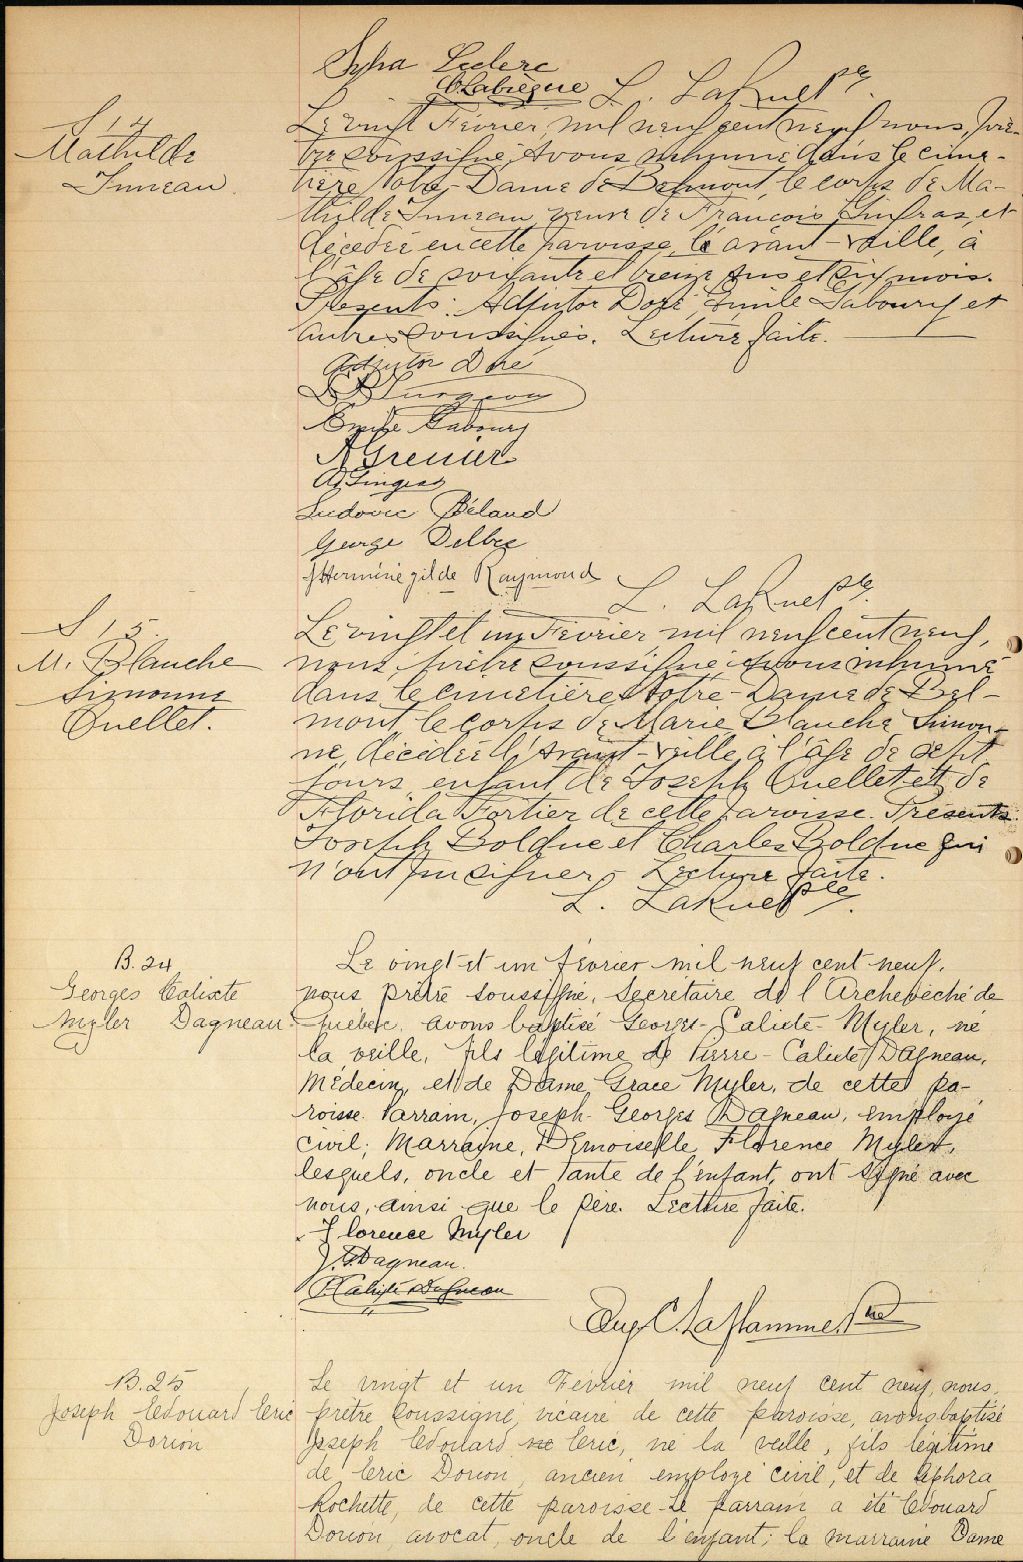 Sylva Leclerc
O Labrèque L. LaRue ptre.
S 14
Mathilde
Juneau.
Le vingt Février mil neuf cent neuf nous, prê-
tre soussigné, avons inhumé dans le cime-
tière Notre-Dame de Belmont, le corps de Ma-
thilde Juneau, veuve de François Gingras, et
décédée en cette paroisse, l'avant-veille, à
l'âge de soixante et treize ans et six mois.
Présents: Adjutor Doré, Emile Gaboury et
autres soussignés. Lecture faite.
Adjutor Doré
Turgeon
Emile Gaboury
A Grenier
A Gingras
Ludovic Béland
George Delbec
J Herménégilde Raymond L. LaRue ptre.
S 15.
M. Blanche
Simonne
Ouellet.
Le vingt et un Février mil neuf cent neuf,
nous, prêtre soussigné, avons inhumé
dans le cimetière Notre-Dame de Bel-
mont le corps de Marie Blanche Simon-
ne, décédée l'avant-veille à l'âge de sept
jours, enfant de Joseph Ouellet et de
Florida Fortier de cette paroisse. Présents:
Joseph Bolduc et Charles Bolduc qui
n'ont pu signer. Lecture faite.
L. LaRue ptre.
B. 24
Georges Calixte
Myler Dagneau
Le vingt-et un février mil neuf cent neuf,
nous prêtre soussigné, Secrétaire de l'Archevêché de
Québec, avons baptisé Georges-Calixte-Myler, né
la veille, fils légitime de Pierre-Calixte Dagneau,
Médecin, et de Dame Grace Myler, de cette pa-
roisse. Parrain, Joseph-Georges Dagneau, employé
civil; Marraine, Demoiselle Florence Myler,
lesquels, oncle et tante de l'enfant, ont signé avec
nous, ainsi que le père. Lecture faite.
Florence Myler
J. G. Dagneau.
P. Calixte Dagneau
Eug. C. Laflamme, Ptre
B. 25
Joseph Edouard Eric
Dorion
Le vingt et un Février mil neuf cent neuf, nous,
prêtre soussigné, vicaire de cette paroisse, avons baptisé
Joseph Edouard Eric, né la veille, fils légitime
de Eric Dorion, ancien employé civil, et de Séphora
Rochette, de cette paroisse. Le parrain a été Edouard
Dorion, avocat, oncle de l'enfant; la marraine Dame